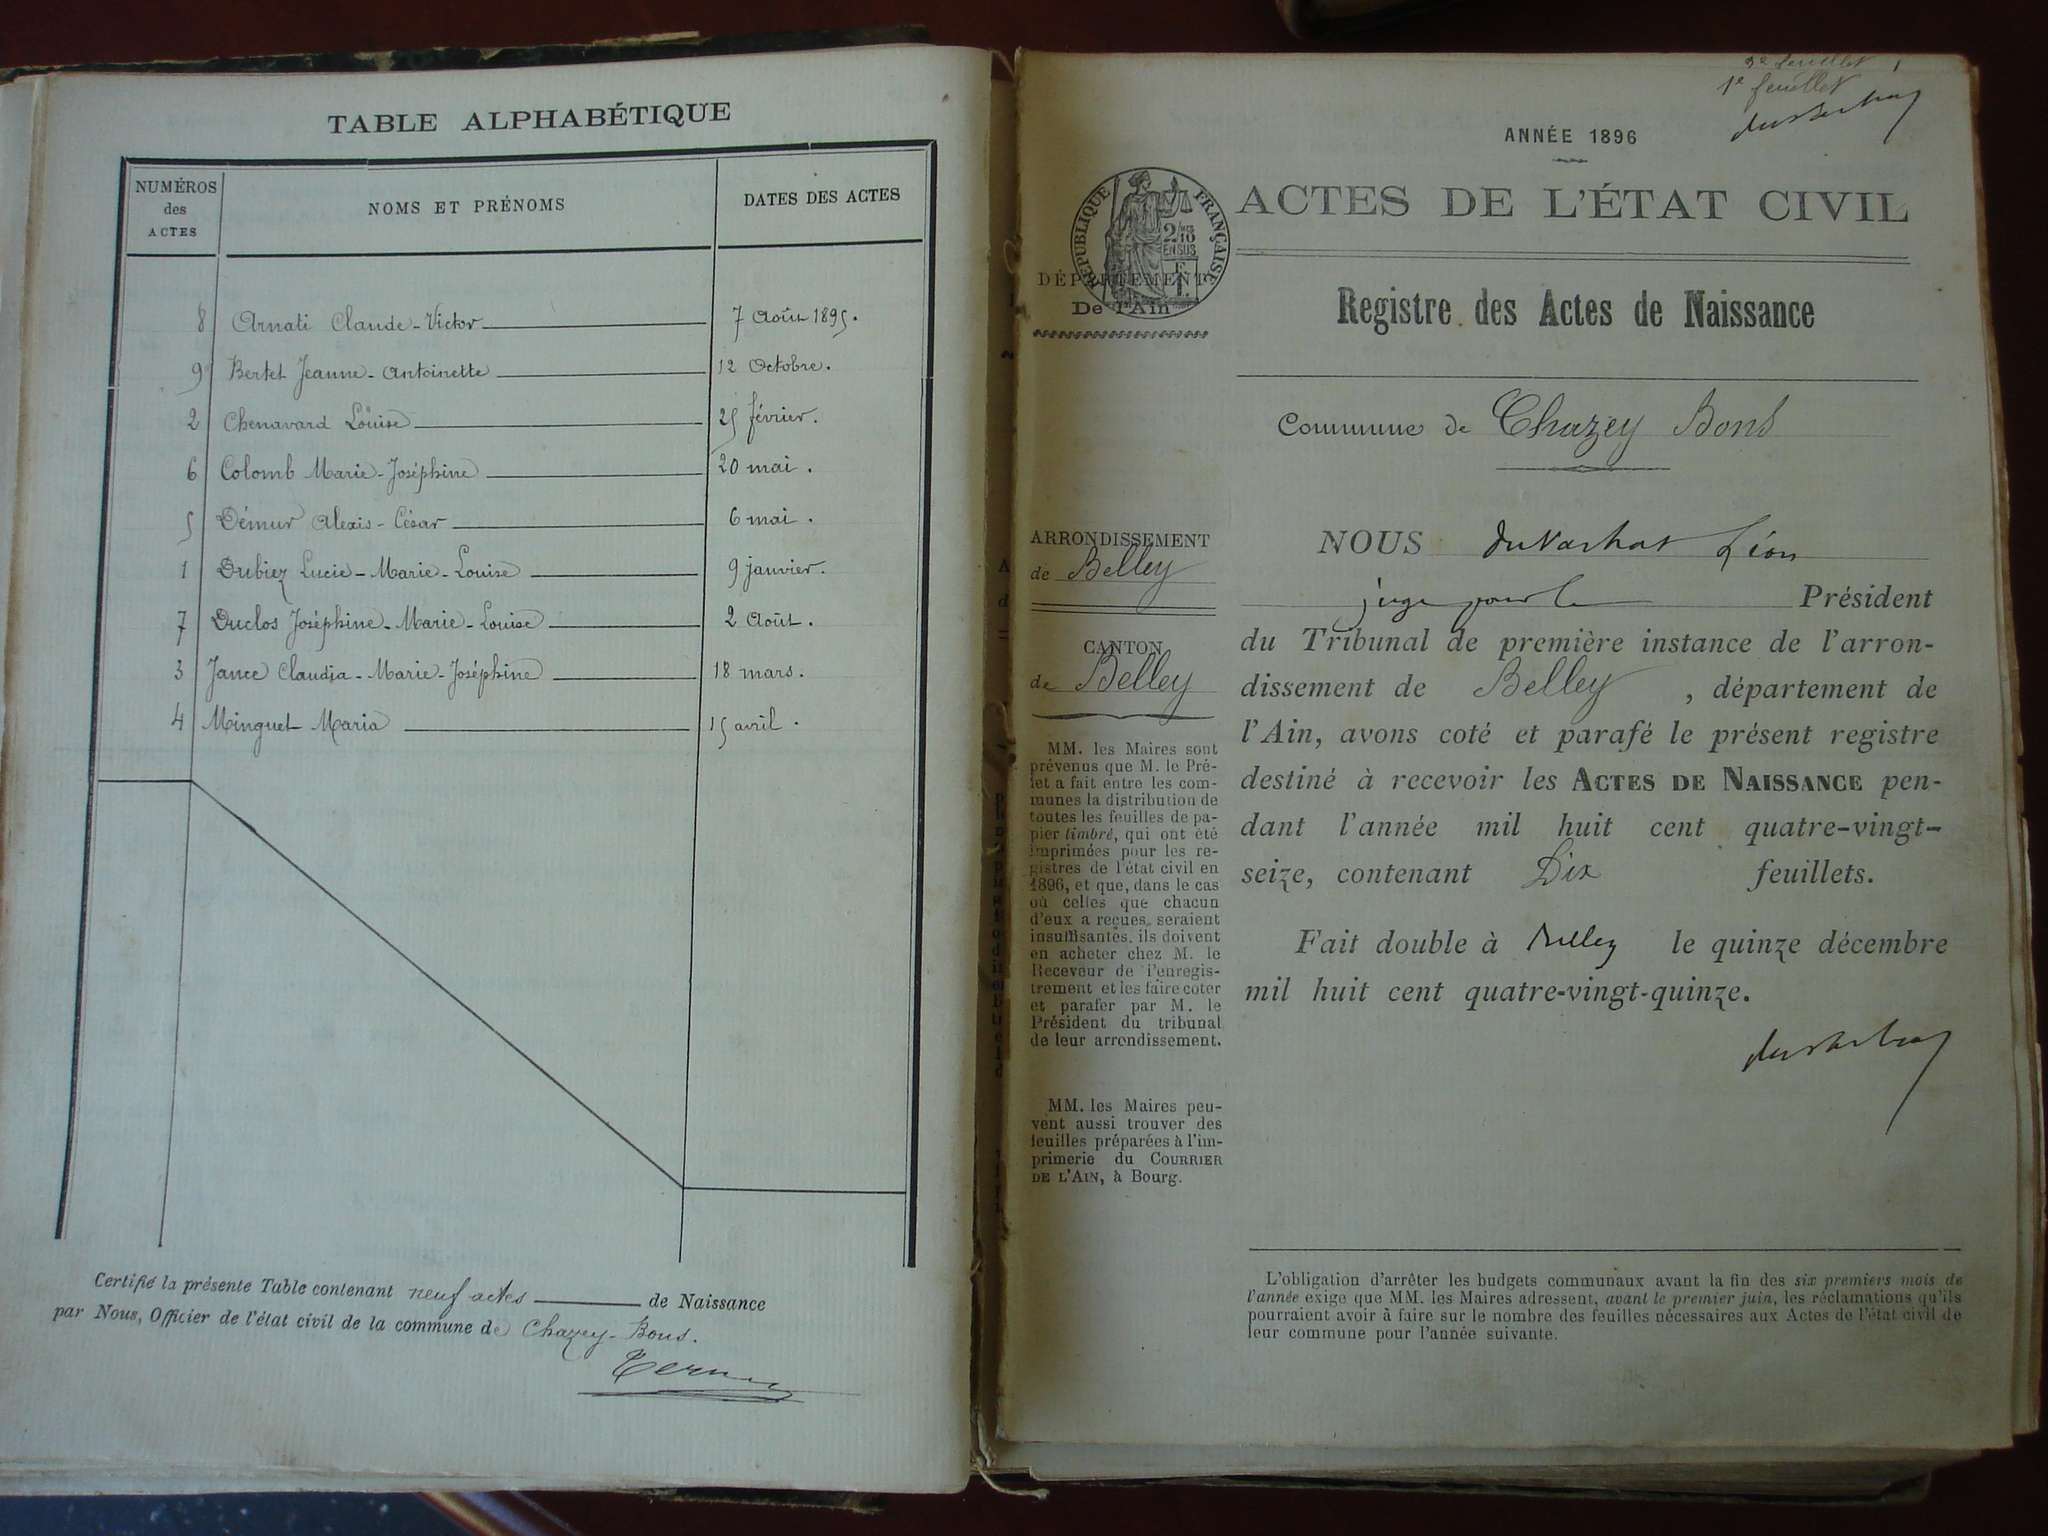 TABLE ALPHABÉTIQUE
NUMÉROS
des
ACTES
NOMS ET PRÉNOMS
DATES DES ACTES
8 Arnati Claude-Victor 7 Août 1895.
9 Bertet Jeanne-Antoinette 12 Octobre.
2 Chenavard Louise 25 février.
6 Colomb Marie-Joséphine 20 mai.
5 Démur Alexis-César 6 mai.
1 Dubiez Lucie-Marie-Louise 9 janvier.
7 Duclos Joséphine-Marie-Louise 2 Août.
3 Jance Claudia-Marie-Joséphine 18 mars.
4 Minguet Maria 15 avril.
Certifié la présente Table contenant neuf actes de Naissance
par Nous, Officier de l'état civil de la commune de Chazey-Bons.
1e feuillet
ANNÉE 1896
ACTES DE L'ÉTAT CIVIL
RÉPUBLIQUE FRANÇAISE
2/10
EN SUS
DÉPARTEMENT
De l'Ain
Registre des Actes de Naissance
Commune de Chazey Bons
ARRONDISSEMENT
de Belley
CANTON
de Belley
MM. les Maires sont
prévenus que M. le Pré-
fet a fait entre les com-
munes la distribution de
toutes les feuilles de pa-
pier timbré, qui ont été
imprimées pour les re-
gistres de l'état civil en
1896, et que, dans le cas
où celles que chacun
d'eux a reçues, seraient
insuffisantes, ils doivent
en acheter chez M. le
Receveur de l'enregis-
trement et les faire coter
et parafer par M. le
Président du tribunal
de leur arrondissement.
MM. les Maires peu-
vent aussi trouver des
feuilles préparées à l'im-
primerie du COURRIER
DE L'AIN, à Bourg.
NOUS Duvachat Léon
juge pour le Président
du Tribunal de première instance de l'arron-
dissement de Belley, département de
l'Ain, avons coté et parafé le présent registre
destiné à recevoir les ACTES DE NAISSANCE pen-
dant l'année mil huit cent quatre-vingt-
seize, contenant Dix feuillets.
Fait double à Belley le quinze décembre
mil huit cent quatre-vingt-quinze.
L'obligation d'arrêter les budgets communaux avant la fin des six premiers mois de
l'année exige que MM. les Maires adressent, avant le premier juin, les réclamations qu'ils
pourraient avoir à faire sur le nombre des feuilles nécessaires aux Actes de l'état civil de
leur commune pour l'année suivante.